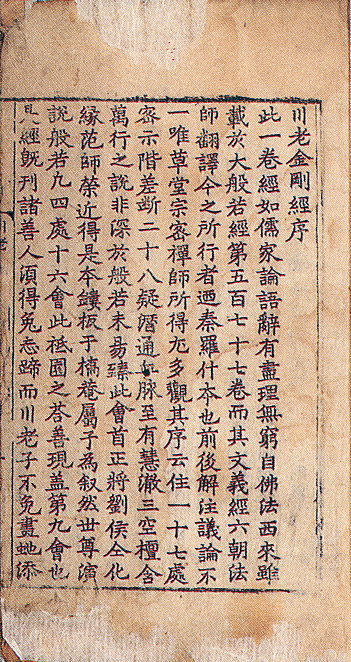 川老金剛經序
此一卷經如儒家論語辭有盡理無窮自佛法西來雖
載於大般若經第五百七十七卷而其文義經六朝法
師翻譯今之所行者迺秦羅什本也前後解注議論不
一唯草堂宗密禪師所得尤多觀其序云住一十七處
密示階差断二十八疑潛通血脉至有慧澈三空檀含
萬行之說非深於般若未易臻此會首正將劉侯仝化
縁范師榮近得是本鏤板于槁菴屬予為叙然世尊演
說般若九四處十六會此祇園之荅善現盖第九會也
是經既刊諸善人須得兔忘蹄而川老子不免畫虵添